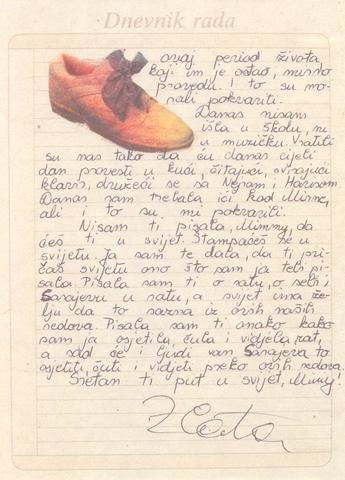 ·Dnevnik rada
ovaj period života
koji im je ostao, mirno
provedu. I to su mo-
rali pokvariti.
Danas nisam
išla u školu, ni
u muzičku. Vratili
su nas tako da ću danas cijeli
dan provesti u kući, čitajući, svirajući
klavir, družeći se sa Nejram i Harisom.
Danas sam trebala ići kod Mirne,
ali i to su mi pokvarili.
Nisam ti pisala, Mimmy, da
ćeš ti u svijet. Štampaćeš se u
svijetu. Ja sam te dala, da ti pri-
čaš svijetu ono što sam ja tebi pi-
sala. Pisala sam ti o ratu, o sebi i
Sarajevu u ratu, a svijet ima že-
lju da to sazna iz ovih naših
redova. Pisala sam ti onako kako
sam ja osjetila, čula i vidjela rat,
a sad će i ljudi van Sarajeva to
osjetiti, čuti i vidjeti preko ovih redova.
Sretan ti put u svijet, Mimmy!
Zlata